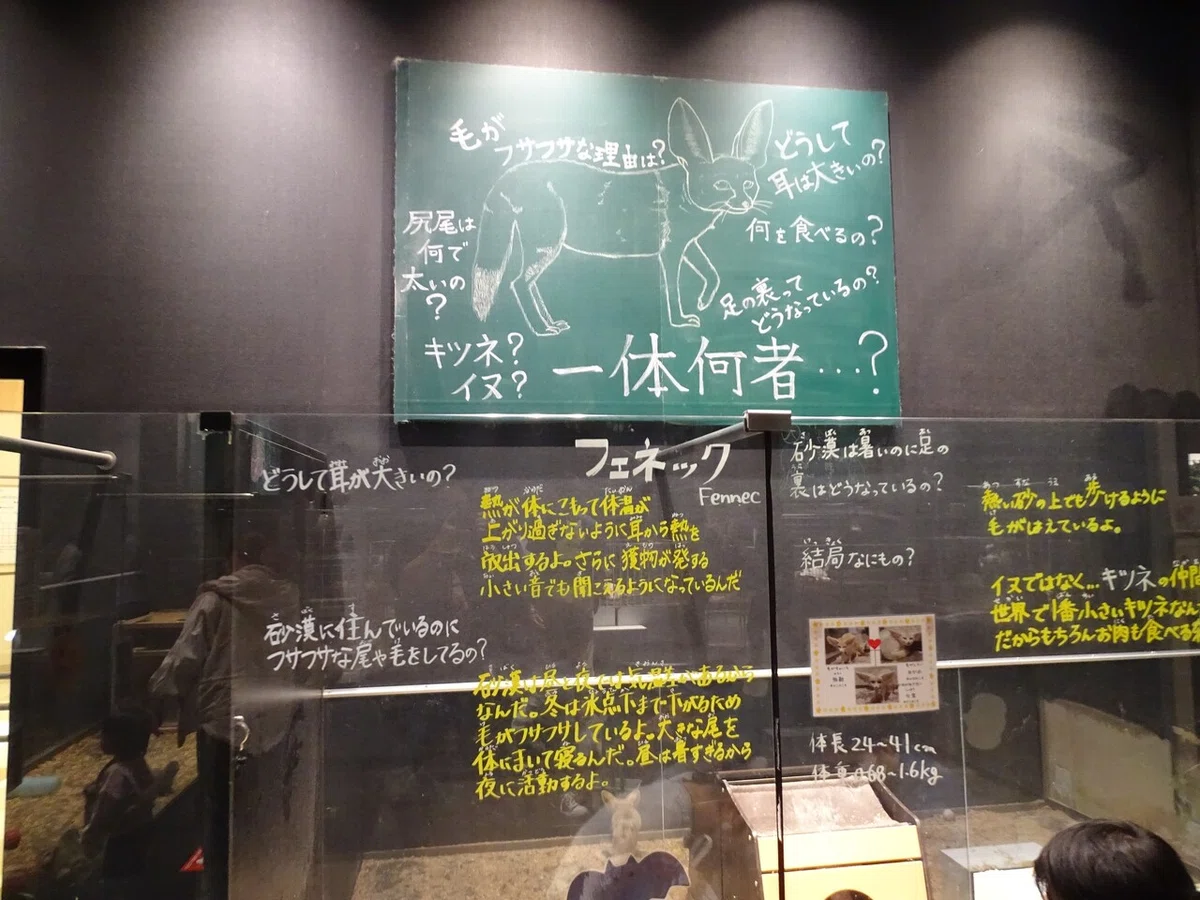 毛が
フサフサな理由は?
どうして
耳は大きいの?
尻尾は
何で
太いの
?
何を食べるの?
足の裏って
どうなっているの?
キツネ?
イヌ?
一体何者…?
フェネック
Fennec
どうして耳が大きいの?
熱が体にこもって体温が
上がり過ぎないように耳から熱を
放出するよ。さらに獲物が発する
小さい音でも聞こえるようになっているんだ
砂漠に住んでいるのに
フサフサな尾や毛をしてるの?
砂漠は昼と夜では気温差があるから
なんだ。冬は氷点下まで下がるため
毛がフサフサしているよ。大きな尾を
体にまいて寝るんだ。昼は暑すぎるから
夜に活動するよ。
砂漠は暑いのに足の
裏はどうなっているの?
熱い砂の上でも歩けるように
毛がはえているよ。
結局なにもの?
イヌではなく…キツネの仲間
世界で1番小さいキツネなん
だからもちろんお肉も食べる
体長24~41cm
体重0.68~1.6kg